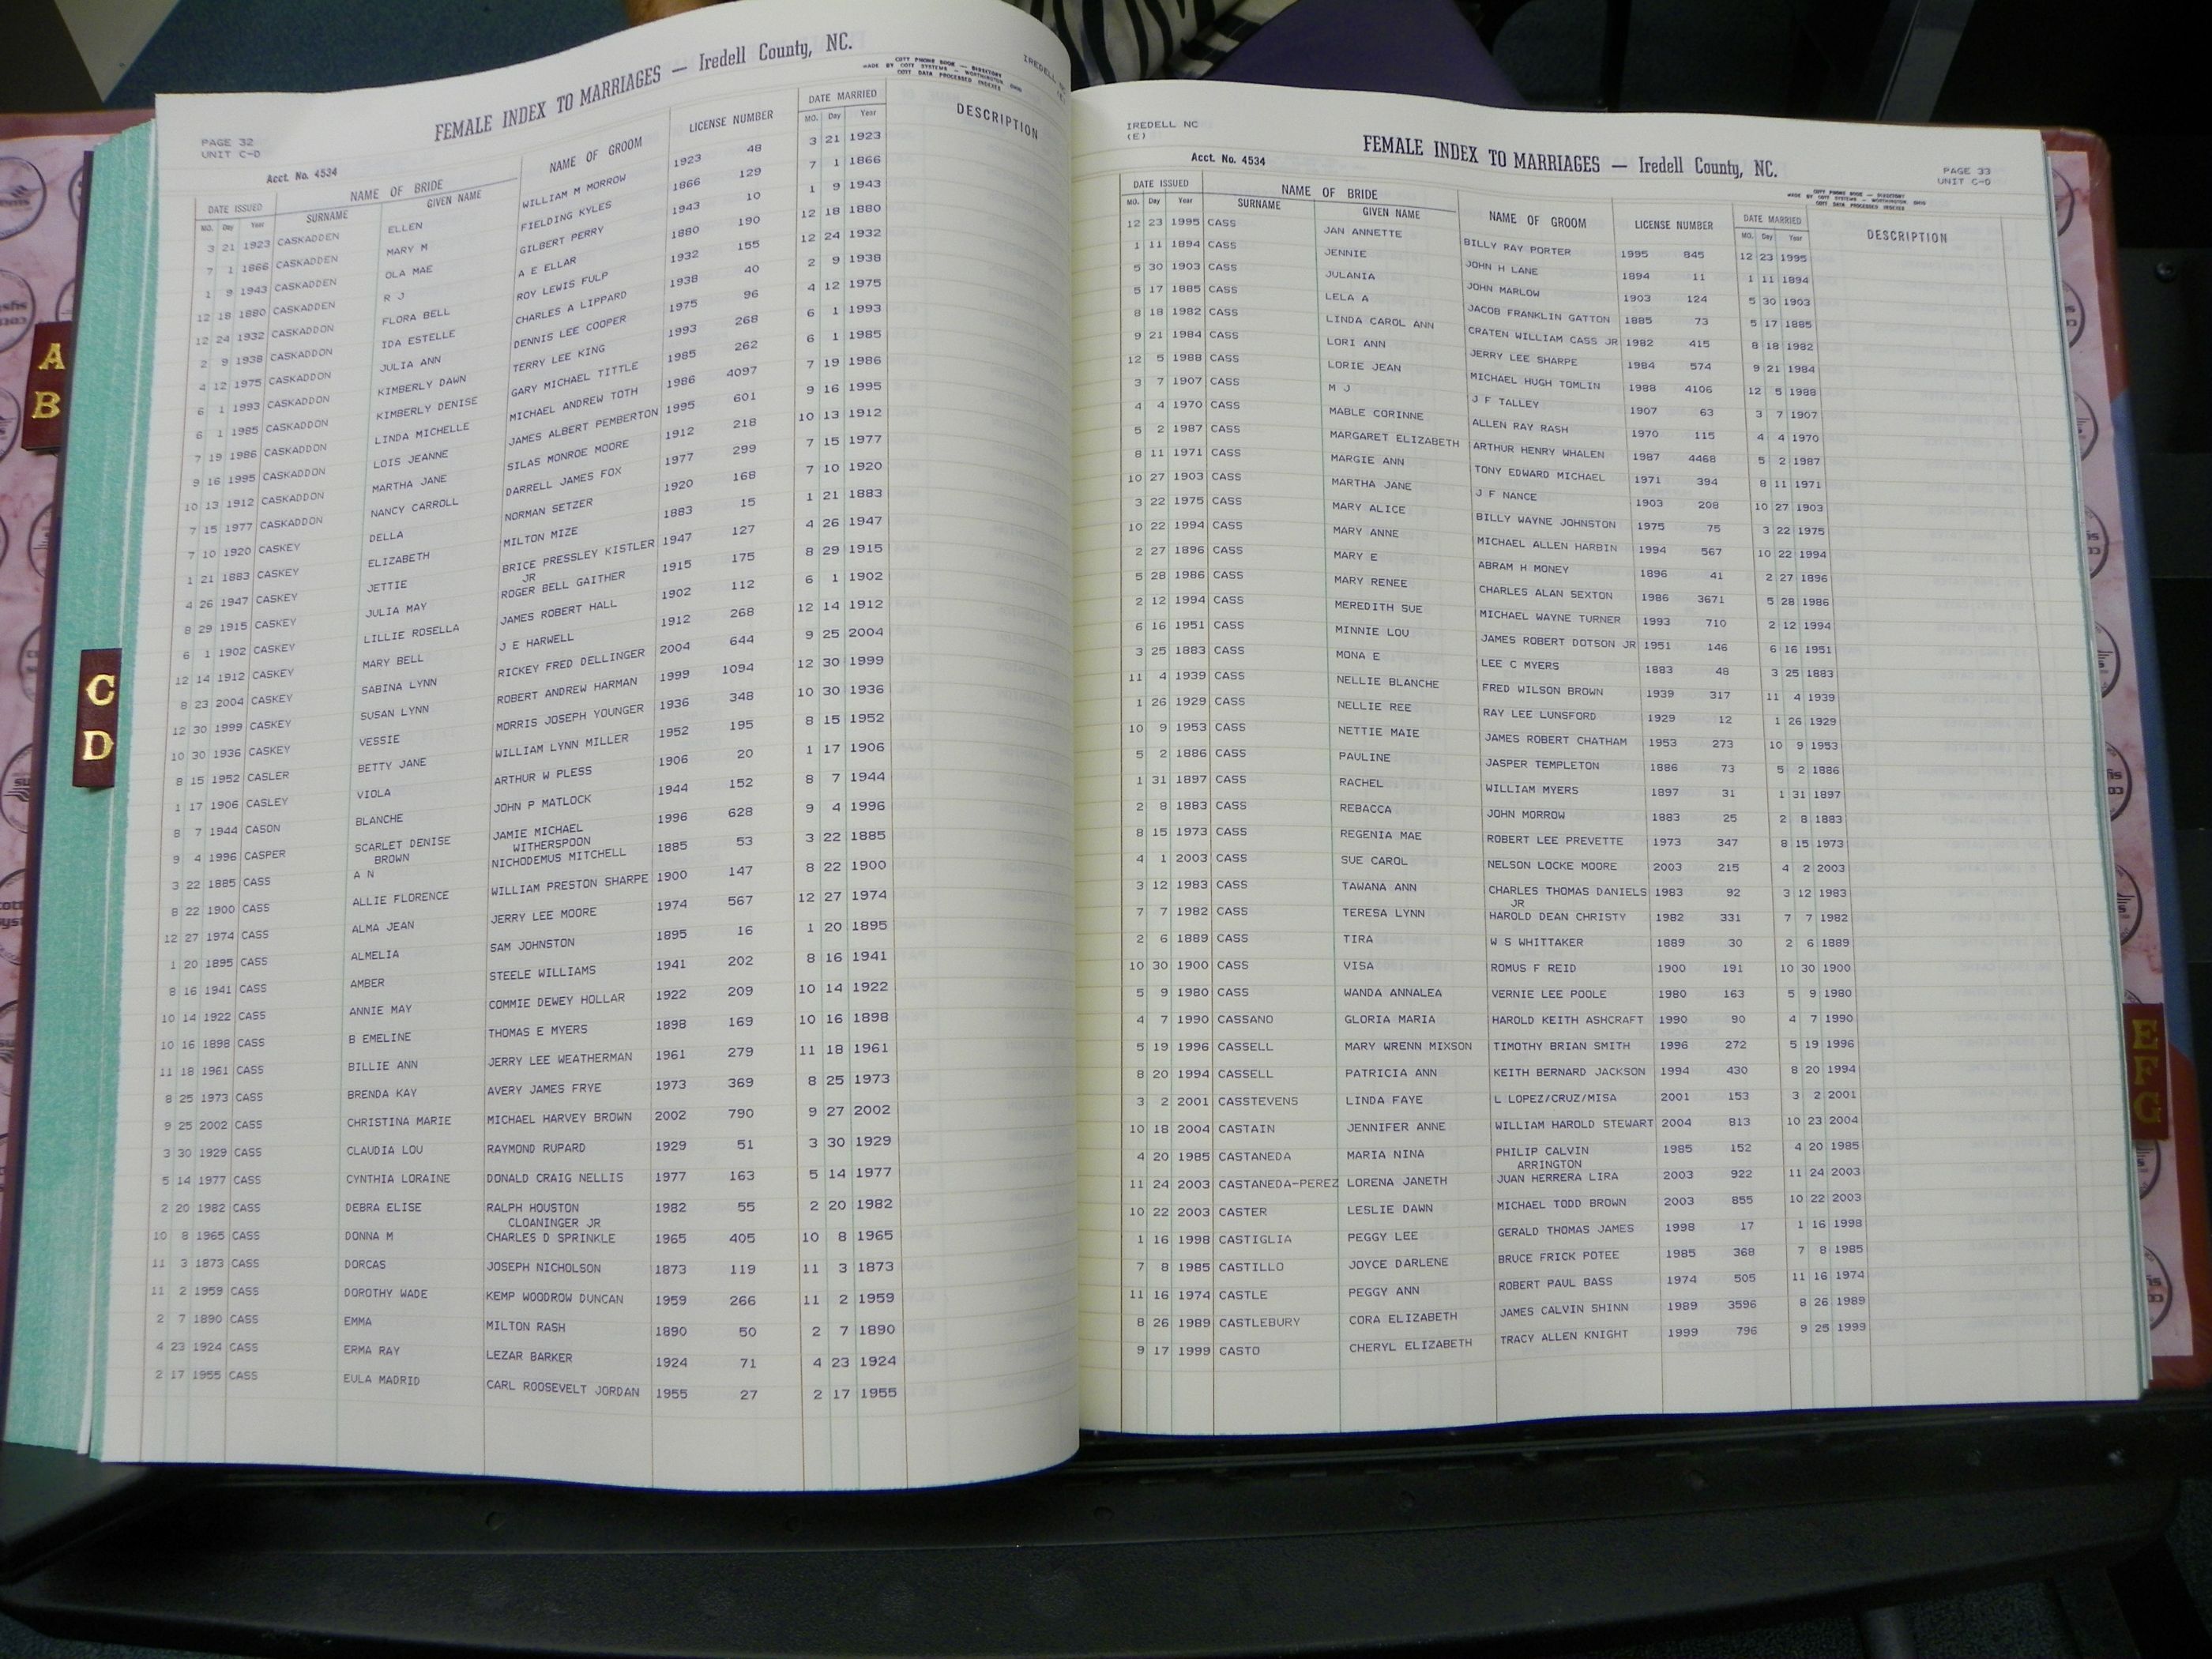 PAGE 32
UNIT C-D
Acct. No. 4534
FEMALE INDEX TO MARRIAGES — Iredell County, NC.
COTT PHONE BOOK — DIRECTORY
MADE BY COTT SYSTEMS — WORTHINGTON OHIO
COTT DATA PROCESSED INDEXES
DATE ISSUED NAME OF BRIDE NAME OF GROOM LICENSE NUMBER DATE MARRIED DESCRIPTION
MO. Day Year SURNAME GIVEN NAME MO. Day Year
3 21 1923 CASKADDEN ELLEN WILLIAM M MORROW 1923 48 3 21 1923
7 1 1866 CASKADDEN MARY M FIELDING KYLES 1866 129 7 1 1866
1 9 1943 CASKADDEN OLA MAE GILBERT PERRY 1943 10 1 9 1943
12 18 1880 CASKADDEN R J A E ELLAR 1880 190 12 18 1880
12 24 1932 CASKADDON FLORA BELL ROY LEWIS FULP 1932 155 12 24 1932
2 9 1938 CASKADDON IDA ESTELLE CHARLES A LIPPARD 1938 40 2 9 1938
4 12 1975 CASKADDON JULIA ANN DENNIS LEE COOPER 1975 96 4 12 1975
6 1 1993 CASKADDON KIMBERLY DAWN TERRY LEE KING 1993 268 6 1 1993
6 1 1985 CASKADDON KIMBERLY DENISE GARY MICHAEL TITTLE 1985 262 6 1 1985
7 19 1986 CASKADDON LINDA MICHELLE MICHAEL ANDREW TOTH 1986 4097 7 19 1986
9 16 1995 CASKADDON LOIS JEANNE JAMES ALBERT PEMBERTON 1995 601 9 16 1995
10 13 1912 CASKADDON MARTHA JANE SILAS MONROE MOORE 1912 218 10 13 1912
7 15 1977 CASKADDON NANCY CARROLL DARRELL JAMES FOX 1977 299 7 15 1977
7 10 1920 CASKEY DELLA NORMAN SETZER 1920 168 7 10 1920
1 21 1883 CASKEY ELIZABETH MILTON MIZE 1883 15 1 21 1883
4 26 1947 CASKEY JETTIE BRICE PRESSLEY KISTLER 1947 127 4 26 1947
JR
8 29 1915 CASKEY JULIA MAY ROGER BELL GAITHER 1915 175 8 29 1915
6 1 1902 CASKEY LILLIE ROSELLA JAMES ROBERT HALL 1902 112 6 1 1902
12 14 1912 CASKEY MARY BELL J E HARWELL 1912 268 12 14 1912
8 23 2004 CASKEY SABINA LYNN RICKEY FRED DELLINGER 2004 644 9 25 2004
12 30 1999 CASKEY SUSAN LYNN ROBERT ANDREW HARMAN 1999 1094 12 30 1999
10 30 1936 CASKEY VESSIE MORRIS JOSEPH YOUNGER 1936 348 10 30 1936
8 15 1952 CASLER BETTY JANE WILLIAM LYNN MILLER 1952 195 8 15 1952
1 17 1906 CASLEY VIOLA ARTHUR W PLESS 1906 20 1 17 1906
8 7 1944 CASON BLANCHE JOHN P MATLOCK 1944 152 8 7 1944
9 4 1996 CASPER SCARLET DENISE JAMIE MICHAEL 1996 628 9 4 1996
BROWN WITHERSPOON
3 22 1885 CASS A N NICHODEMUS MITCHELL 1885 53 3 22 1885
8 22 1900 CASS ALLIE FLORENCE WILLIAM PRESTON SHARPE 1900 147 8 22 1900
12 27 1974 CASS ALMA JEAN JERRY LEE MOORE 1974 567 12 27 1974
1 20 1895 CASS ALMELIA SAM JOHNSTON 1895 16 1 20 1895
8 16 1941 CASS AMBER STEELE WILLIAMS 1941 202 8 16 1941
10 14 1922 CASS ANNIE MAY COMMIE DEWEY HOLLAR 1922 209 10 14 1922
10 16 1898 CASS B EMELINE THOMAS E MYERS 1898 169 10 16 1898
11 18 1961 CASS BILLIE ANN JERRY LEE WEATHERMAN 1961 279 11 18 1961
8 25 1973 CASS BRENDA KAY AVERY JAMES FRYE 1973 369 8 25 1973
9 25 2002 CASS CHRISTINA MARIE MICHAEL HARVEY BROWN 2002 790 9 27 2002
3 30 1929 CASS CLAUDIA LOU RAYMOND RUPARD 1929 51 3 30 1929
5 14 1977 CASS CYNTHIA LORAINE DONALD CRAIG NELLIS 1977 163 5 14 1977
2 20 1982 CASS DEBRA ELISE RALPH HOUSTON 1982 55 2 20 1982
CLOANINGER JR
10 8 1965 CASS DONNA M CHARLES D SPRINKLE 1965 405 10 8 1965
11 3 1873 CASS DORCAS JOSEPH NICHOLSON 1873 119 11 3 1873
11 2 1959 CASS DOROTHY WADE KEMP WOODROW DUNCAN 1959 266 11 2 1959
2 7 1890 CASS EMMA MILTON RASH 1890 50 2 7 1890
4 23 1924 CASS ERMA RAY LEZAR BARKER 1924 71 4 23 1924
2 17 1955 CASS EULA MADRID CARL ROOSEVELT JORDAN 1955 27 2 17 1955
IREDELL NC
(E)
Acct. No. 4534
FEMALE INDEX TO MARRIAGES — Iredell County, NC.
PAGE 33
UNIT C-D
COTT PHONE BOOK — DIRECTORY
MADE BY COTT SYSTEMS — WORTHINGTON OHIO
COTT DATA PROCESSED INDEXES
DATE ISSUED NAME OF BRIDE NAME OF GROOM LICENSE NUMBER DATE MARRIED DESCRIPTION
MO. Day Year SURNAME GIVEN NAME MO. Day Year
12 23 1995 CASS JAN ANNETTE BILLY RAY PORTER 1995 845 12 23 1995
1 11 1894 CASS JENNIE JOHN H LANE 1894 11 1 11 1894
5 30 1903 CASS JULANIA JOHN MARLOW 1903 124 5 30 1903
5 17 1885 CASS LELA A JACOB FRANKLIN GATTON 1885 73 5 17 1885
8 18 1982 CASS LINDA CAROL ANN CRATEN WILLIAM CASS JR 1982 415 8 18 1982
9 21 1984 CASS LORI ANN JERRY LEE SHARPE 1984 574 9 21 1984
12 5 1988 CASS LORIE JEAN MICHAEL HUGH TOMLIN 1988 4106 12 5 1988
3 7 1907 CASS M J J F TALLEY 1907 63 3 7 1907
4 4 1970 CASS MABLE CORINNE ALLEN RAY RASH 1970 115 4 4 1970
5 2 1987 CASS MARGARET ELIZABETH ARTHUR HENRY WHALEN 1987 4468 5 2 1987
8 11 1971 CASS MARGIE ANN TONY EDWARD MICHAEL 1971 394 8 11 1971
10 27 1903 CASS MARTHA JANE J F NANCE 1903 208 10 27 1903
3 22 1975 CASS MARY ALICE BILLY WAYNE JOHNSTON 1975 75 3 22 1975
10 22 1994 CASS MARY ANNE MICHAEL ALLEN HARBIN 1994 567 10 22 1994
2 27 1896 CASS MARY E ABRAM H MONEY 1896 41 2 27 1896
5 28 1986 CASS MARY RENEE CHARLES ALAN SEXTON 1986 3671 5 28 1986
2 12 1994 CASS MEREDITH SUE MICHAEL WAYNE TURNER 1993 710 2 12 1994
6 16 1951 CASS MINNIE LOU JAMES ROBERT DOTSON JR 1951 146 6 16 1951
3 25 1883 CASS MONA E LEE C MYERS 1883 48 3 25 1883
11 4 1939 CASS NELLIE BLANCHE FRED WILSON BROWN 1939 317 11 4 1939
1 26 1929 CASS NELLIE REE RAY LEE LUNSFORD 1929 12 1 26 1929
10 9 1953 CASS NETTIE MAIE JAMES ROBERT CHATHAM 1953 273 10 9 1953
5 2 1886 CASS PAULINE JASPER TEMPLETON 1886 73 5 2 1886
1 31 1897 CASS RACHEL WILLIAM MYERS 1897 31 1 31 1897
2 8 1883 CASS REBACCA JOHN MORROW 1883 25 2 8 1883
8 15 1973 CASS REGENIA MAE ROBERT LEE PREVETTE 1973 347 8 15 1973
4 1 2003 CASS SUE CAROL NELSON LOCKE MOORE 2003 215 4 2 2003
3 12 1983 CASS TAWANA ANN CHARLES THOMAS DANIELS 1983 92 3 12 1983
JR
7 7 1982 CASS TERESA LYNN HAROLD DEAN CHRISTY 1982 331 7 7 1982
2 6 1889 CASS TIRA W S WHITTAKER 1889 30 2 6 1889
10 30 1900 CASS VISA ROMUS F REID 1900 191 10 30 1900
5 9 1980 CASS WANDA ANNALEA VERNIE LEE POOLE 1980 163 5 9 1980
4 7 1990 CASSANO GLORIA MARIA HAROLD KEITH ASHCRAFT 1990 90 4 7 1990
5 19 1996 CASSELL MARY WRENN MIXSON TIMOTHY BRIAN SMITH 1996 272 5 19 1996
8 20 1994 CASSELL PATRICIA ANN KEITH BERNARD JACKSON 1994 430 8 20 1994
3 2 2001 CASSTEVENS LINDA FAYE L LOPEZ/CRUZ/MISA 2001 153 3 2 2001
10 18 2004 CASTAIN JENNIFER ANNE WILLIAM HAROLD STEWART 2004 813 10 23 2004
4 20 1985 CASTANEDA MARIA NINA PHILIP CALVIN 1985 152 4 20 1985
ARRINGTON
11 24 2003 CASTANEDA-PEREZ LORENA JANETH JUAN HERRERA LIRA 2003 922 11 24 2003
10 22 2003 CASTER LESLIE DAWN MICHAEL TODD BROWN 2003 855 10 22 2003
1 16 1998 CASTIGLIA PEGGY LEE GERALD THOMAS JAMES 1998 17 1 16 1998
7 8 1985 CASTILLO JOYCE DARLENE BRUCE FRICK POTEE 1985 368 7 8 1985
11 16 1974 CASTLE PEGGY ANN ROBERT PAUL BASS 1974 505 11 16 1974
8 26 1989 CASTLEBURY CORA ELIZABETH JAMES CALVIN SHINN 1989 3596 8 26 1989
9 17 1999 CASTO CHERYL ELIZABETH TRACY ALLEN KNIGHT 1999 796 9 25 1999
A
B
C
D
E
F
G